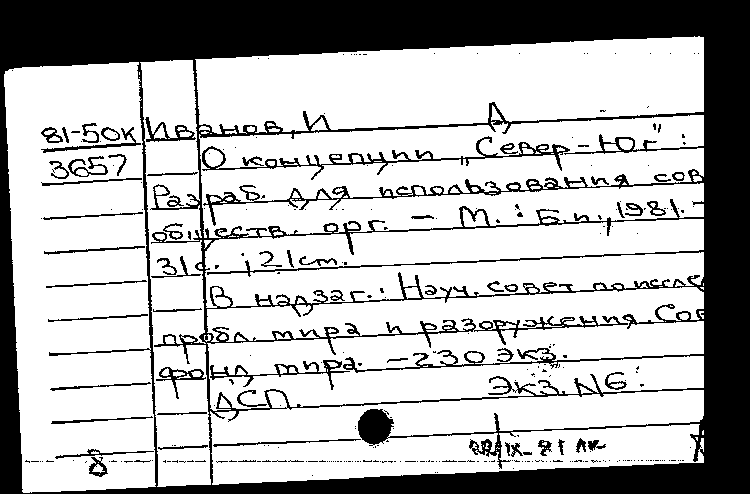 81-50к Иванов, И Д
3657 О концепции „Север-Юг":
Разраб. для использования сов
обществ. орг. – М.: Б.и., 1981. –
31с. ; 21см.
В надзаг.: Науч. совет по иссле
пробл. мира и разоружения. Сов
фонд мира. – 230 экз.
ДСП. Экз. N6:
8 IX-81